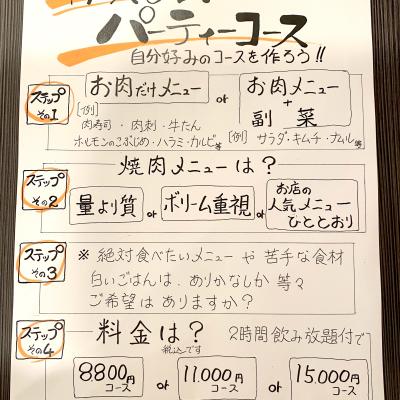 パーティーコース
自分好みのコースを作ろう!!
ステップ その1
お肉だけメニュー or お肉メニュー + 副菜
[例] 肉寿司・肉刺・牛たん
ホルモンのこぶじめ・ハラミ・カルビ等
[例] サラダ・キムチ・ナムル等
ステップ その2
焼肉メニューは?
量より質 or ボリーム重視 or お店の人気メニューひととおり
ステップ その3
※ 絶対食べたいメニューや苦手な食材
白いごはんは、ありかなしか 等々
ご希望はありますか?
ステップ その4
料金は? 2時間飲み放題付で
税込です
8800円コース or 11.000円コース or 15.000円コース